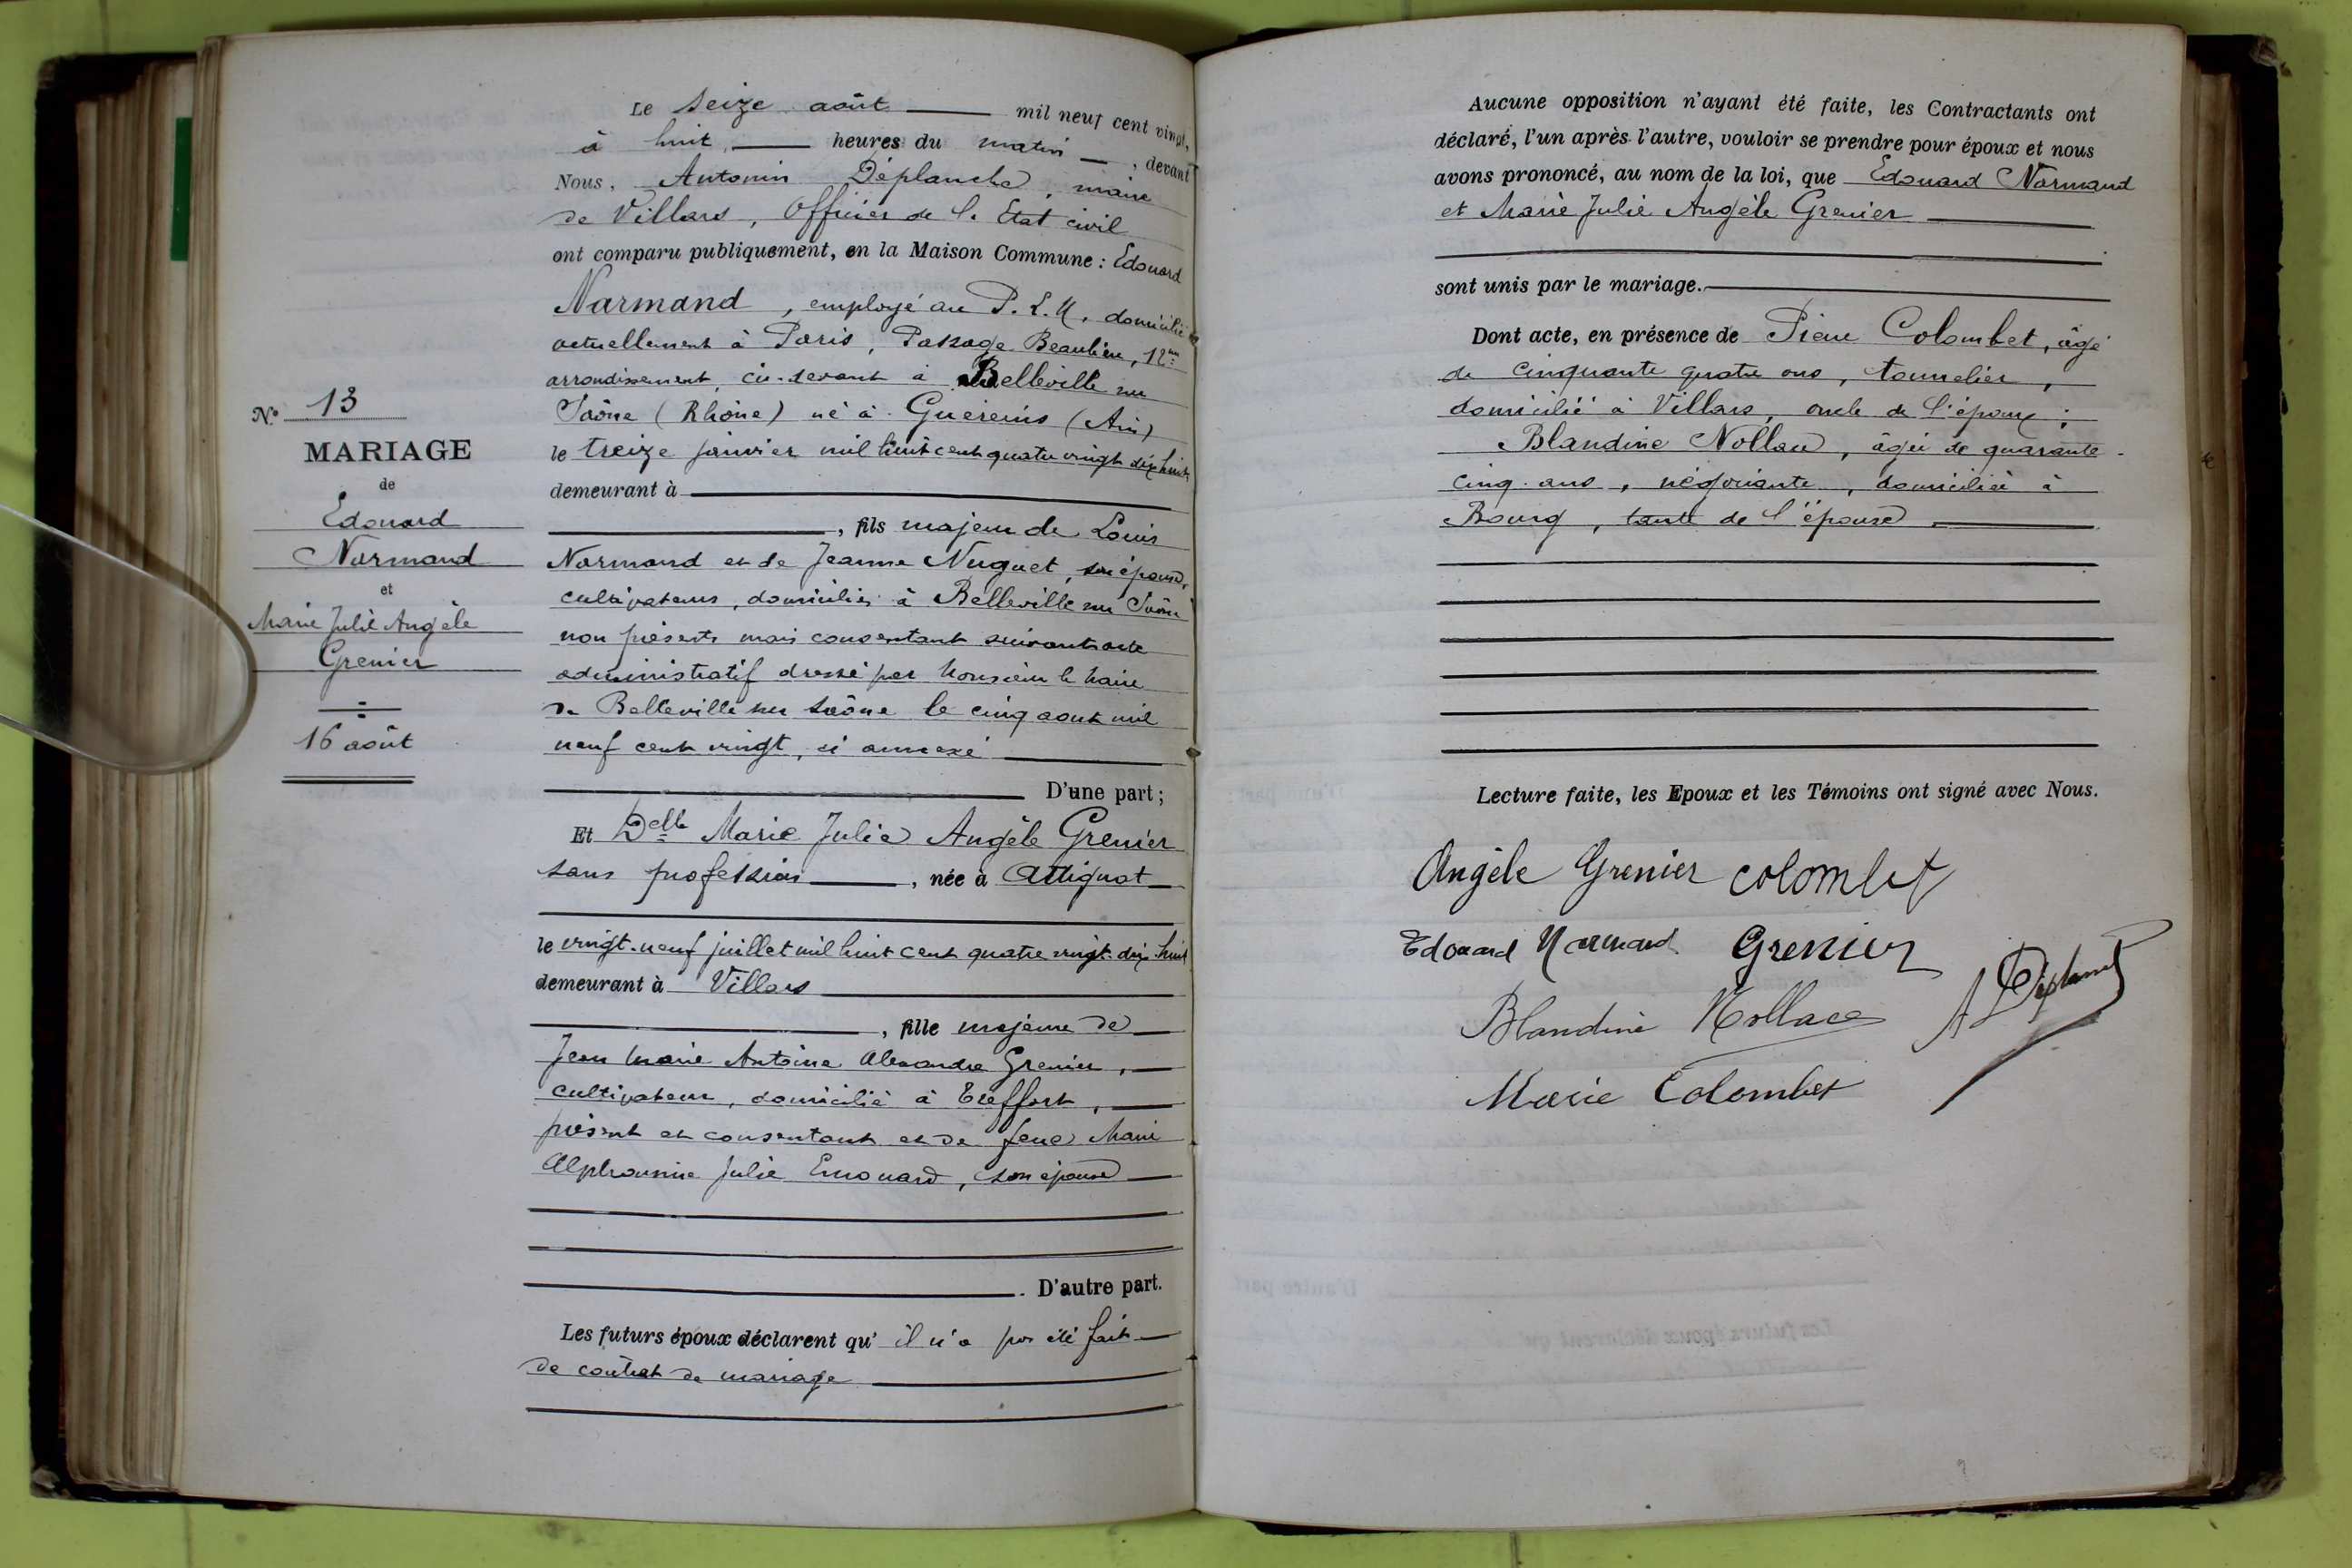 N° 13
MARIAGE
de
Edouard
Normand
et
Marie Julie Angèle
Grenier
16 août
Le seize août mil neuf cent vingt,
à huit heures du matin, devant
Nous, Antonin Déplanche, maire
de Villars, Officier de l'Etat civil
ont comparu publiquement, en la Maison Commune : Edouard
Normand, employé au P.L.M. domicilié
actuellement à Paris, Passage Beaulieu, 12me
arrondissement, ci-devant à Belleville sur
Saône (Rhône) né à Guéreins (Ain)
le treize janvier mil huit cent quatre vingt dix huit
demeurant à
, fils majeur de Louis
Normand et de Jeanne Nuguet, son épouse,
cultivateurs, domiciliés à Belleville sur Saône
non présents mais consentant suivant acte
administratif dressé par Monsieur le Maire
de Belleville sur Saône le cinq aout mil
neuf cent vingt, ci annexé
D'une part ;
Et Delle Marie Julie Angèle Grenier
sans profession, née à Attignat
le vingt-neuf juillet mil huit cent quatre vingt-dix-huit
demeurant à Villars
, fille majeure de
Jean Marie Antoine Alexandre Grenier,
cultivateur, domicilié à Treffort,
présent et consentant et de feue Marie
Alphonsine Julie Emouard, son épouse
D'autre part.
Les futurs époux déclarent qu' il n'a pas été fait
de contrat de mariage
Aucune opposition n'ayant été faite, les Contractants ont
déclaré, l'un après l'autre, vouloir se prendre pour époux et nous
avons prononcé, au nom de la loi, que Edouard Normand
et Marie Julie Angèle Grenier
sont unis par le mariage.
Dont acte, en présence de Pierre Colombet, âgé
de cinquante quatre ans, tonnelier,
domicilié à Villars, oncle de l'époux ;
Blandine Nollau, âgée de quarante-
cinq ans, négociante, domiciliée à
Bourg, tante de l'épouse
Lecture faite, les Epoux et les Témoins ont signé avec Nous.
Angèle Grenier Colombet
Edouard Normand Grenier
Blandine A Déplanche
Marie Colombet